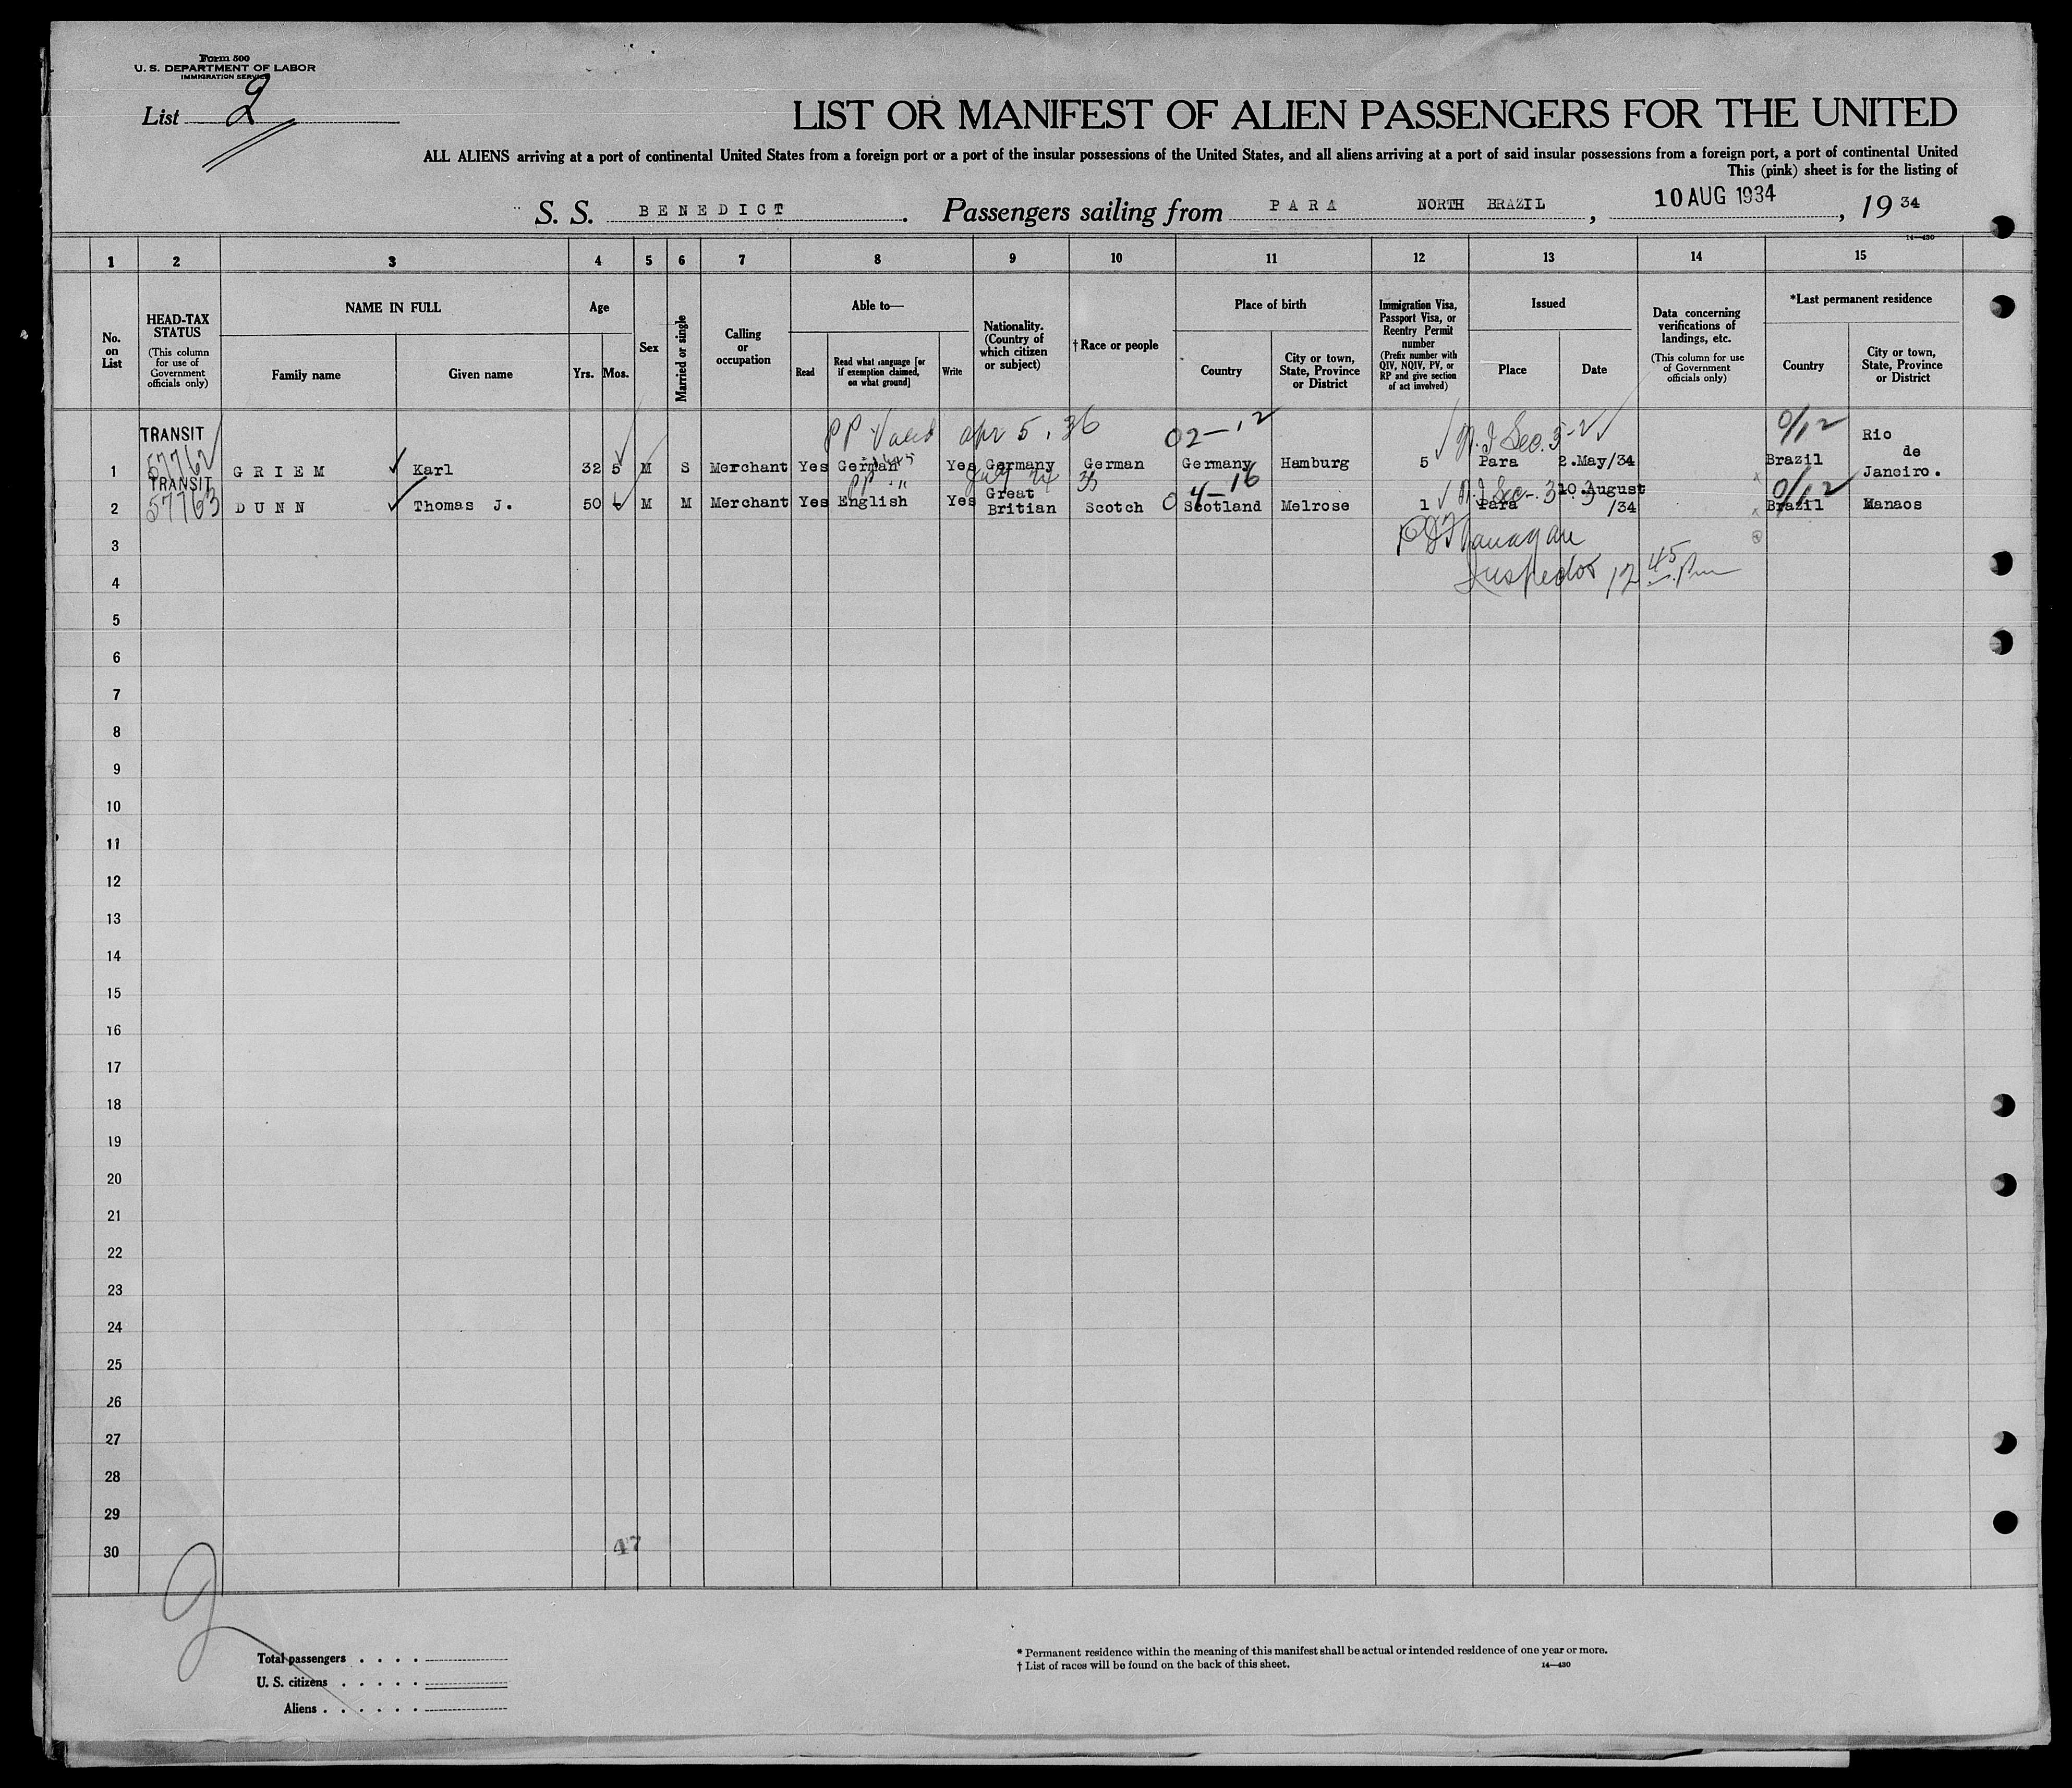 Form 500
U. S. DEPARTMENT OF LABOR
IMMIGRATION SERVICE
List 2
LIST OR MANIFEST OF ALIEN PASSENGERS FOR THE UNITED
ALL ALIENS arriving at a port of continental United States from a foreign port or a port of the insular possessions of the United States, and all aliens arriving at a port of said insular possessions from a foreign port, a port of continental United
This (pink) sheet is for the listing of
S. S. BENEDICT. Passengers sailing from PARA NORTH BRAZIL, 10 AUG 1934, 19 34
14—430
1 2 3 4 5 6 7 8 9 10 11 12 13 14 15
No. on List
HEAD-TAX STATUS
(This column for use of Government officials only)
NAME IN FULL
Family name
Given name
Age
Yrs.
Mos.
Sex
Married or single
Calling or occupation
Able to—
Read
Read what language [or if exemption claimed, on what ground]
Write
Nationality. (Country of which citizen or subject)
† Race or people
Place of birth
Country
City or town, State, Province or District
Immigration Visa, Passport Visa, or Reentry Permit number
(Prefix number with QIV, NQIV, PV, or RP and give section of act involved)
Issued
Place
Date
Data concerning verifications of landings, etc.
(This column for use of Government officials only)
*Last permanent residence
Country
City or town, State, Province or District
TRANSIT PP Valid Apr 5, 36 02-12 Sec. 3-2 0/12 Rio
57762 de
1 GRIEM Karl 32 5 M S Merchant Yes German Yes Germany German Germany Hamburg 5 Para 2.May/34 Brazil Janeiro.
TRANSIT PP " July 24 35 4-16 Sec. 3-3 10.August 0/12
57763 Great
2 DUNN Thomas J. 50 M M Merchant Yes English Yes Britian Scotch Scotland Melrose 1 Para /34 Brazil Manaos
3 Flanagan
4 Inspector 12 45 Pm
5
6
7
8
9
10
11
12
13
14
15
16
17
18
19
20
21
22
23
24
25
26
27
28
29
30
47
2
Total passengers . . . .
U. S. citizens . . . . .
Aliens . . . . . .
* Permanent residence within the meaning of this manifest shall be actual or intended residence of one year or more.
† List of races will be found on the back of this sheet.
14—430